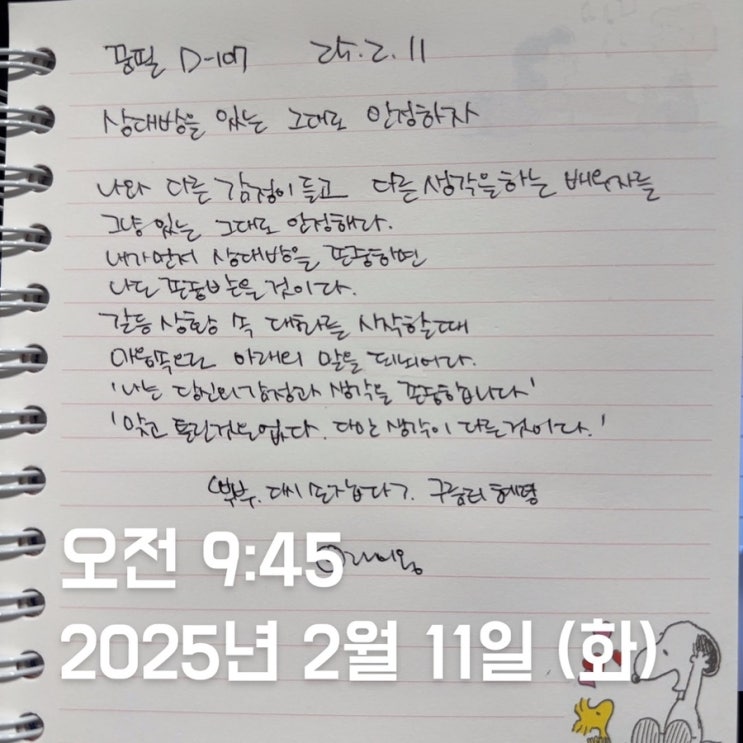 꿈필 D-107 25.2.11
상대방을 있는 그대로 인정하자
나와 다른 감정이 들고 다른 생각을 하는 배우자를
그냥 있는 그대로 인정해라.
내가 먼저 상대방을 존중하면
나도 존중받을 것이다.
갈등 상황 속 대화를 시작할 때
마음속으로 아래의 말을 되뇌어라.
'나는 당신의 감정과 생각을 존중합니다'
'맞고 틀린것은 없다. 다만 생각이 다른것이다.'
부부.
오전 9:45
2025년 2월 11일 (화)